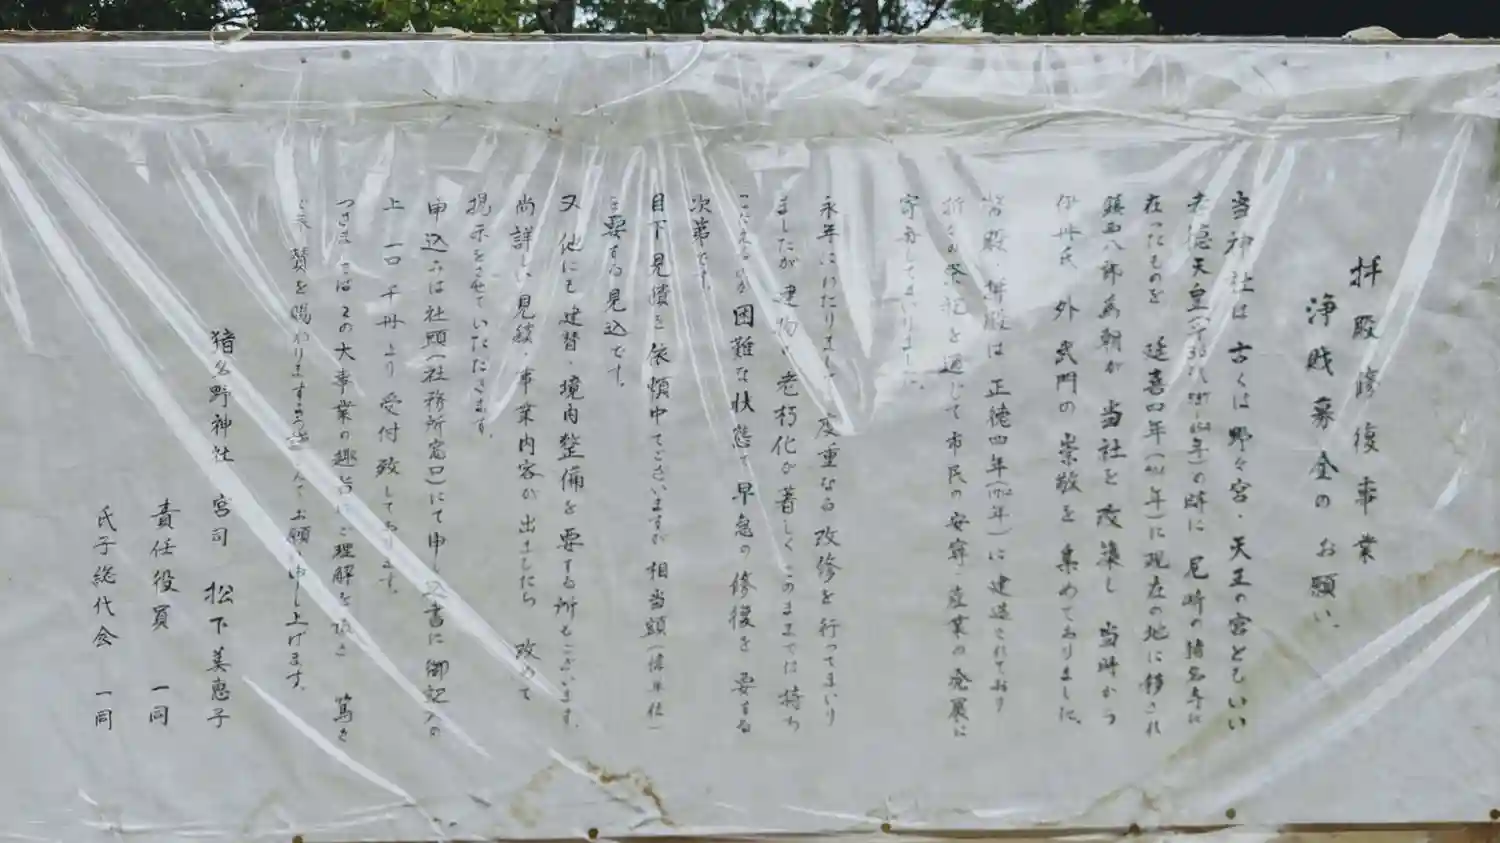 拝殿修復事業
浄財募金のお願い、
当神社は古くは野々宮・天王の宮といい
孝徳天皇の時に 尼崎の猪名寺に
在ったものを 延喜四年に現在の地に移され
鎮西八郎為朝が当社を改築し 当時から
伊丹氏 外 武門の 崇敬を 集めておりました。
拝殿は 正徳四年に建造されており
折々の祭祀を通じて市民の安寧・産業の発展に
寄与してまいりました。
永年にわたりまして 度重なる改修を行ってまいり
ましたが建物の老朽化が著しくこのままでは持ち
困難な状態で早急の修復を 要する
次第です。
目下見積を依頼中でございますが 相当額
を要する見込です。
又 他にも建替・境内整備を要する所もございます。
尚詳しい見積・事業内容が出ましたら 改めて
掲示をさせていただきます。
申込みは社頭(社務所窓口)にて申し込書に御記入の
上 一口 千円より受付致しております。
つきましてはこの大事業の趣旨にご理解を頂き 篤き
ご奉賛を賜わりますようお願い申し上げます。
猪名野神社 宮司 松下美恵子
責任役員 一同
氏子総代会 一同